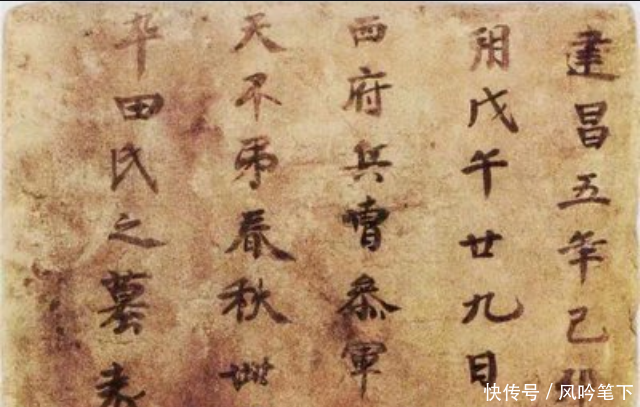 建昌五年己
朔戊午廿九日
西府兵曹叅軍
天不弔春秋
卒田氏之墓表
快传号/风吟笔下